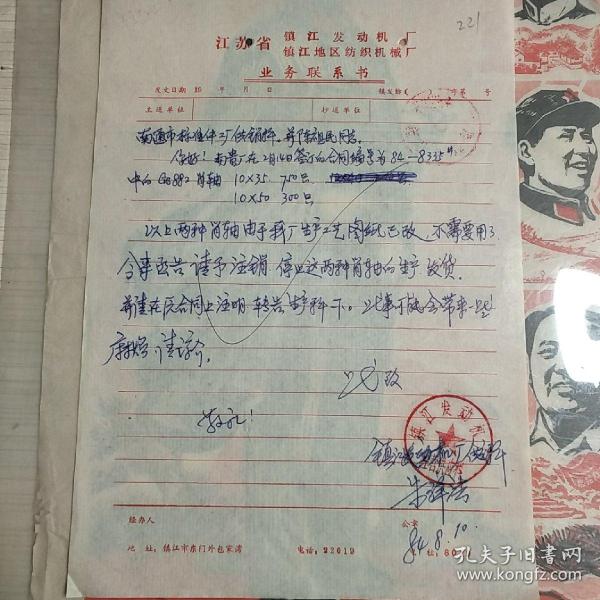 221
江苏省 镇江发动机厂
镇江地区纺织机械厂
业务联系书
发文日期 19 年 月 日 镇发联( ) 字第 号
主送单位 抄送单位
南通市标准件二厂供销科
你好！与贵厂在2月14日签订的合同编号为84-8335
中的 GB882 肖轴 10×35 750只
10×50 300只
以上两种肖轴由于我厂生产工艺图纸已改，不需要用了
今来函告请予注销 停止这两种肖轴的生产发货。
并请在原合同上注明 转告生产科一下。以事可能会带来一些
麻烦，请谅。
此致
敬礼！
镇江发动机厂
镇江发动机厂供应科
经办人 公章
84.8.10.
地 址：镇江市东门外包家湾 电话：22619
孔夫子旧书网
www.kongfz.com